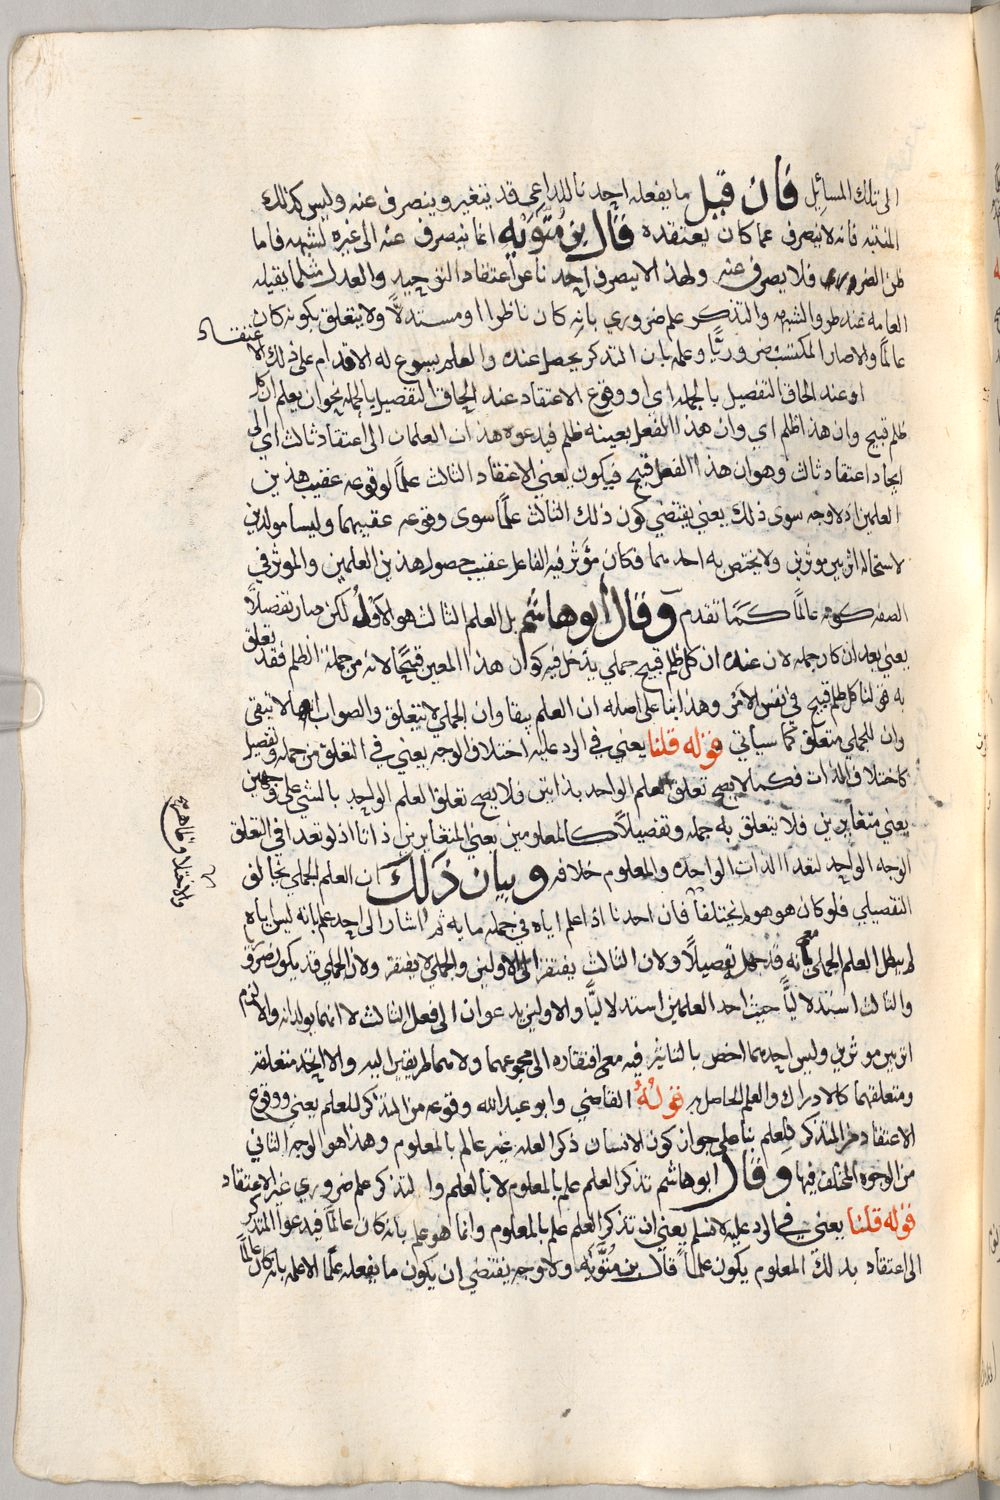 الى تلك المسايل فان قيل ما يفعله احدنا للداعي قد يتغير وينصرف عنه وليس كذلك
المنتبه فانه لا ينصرف عما كان يعتقده قال بن متويه انما ينصرف عنه الى غيره لشبهه فاما
طرو الضروري فلا يصرف عنه ولهذا لا ينصرف احدنا عن اعتقاد التوحيد والعدل مثلما يقبله
العامه عند طرو الشبهه والتذكر علم ضروري بانه كان ناظرا او مستدلا ولا يتعلق بكونه كان
عالما والا صار المكتسب ضروريا وعلم بان المتذكر يحصل عنده والعلم يسوع له الاقدام على ذلك الا
عتقاد
او عند الحاق التفصيل بالجمله اي او وقوع الاعتقاد عند الحاق التفصيل بالجمله نحو ان يعلم ان كل
ظلم قبيح وان هذا ظلم اي وان هذا الفعل بعينه ظلم فيدعوه هذان العلمان الى اعتقاد ثالث اي الى
ايجاد اعتقاد ثالث وهو ان هذا الفعل قبيح فيكون يعني الاعتقاد الثالث علما لوقوعه عقيب هذين
العلمين اذ لا وجه سوى ذلك يعني يقتضي كون ذلك الثالث علما سوى وقوعه عقيبهما وليسا مولدين
لاستحالة اثر بين موثرين ولا يختص به احدهما فكان مؤثر فيه الفاعل عقيب حصول هذين العلمين والموثر في
الصفه كونه عالما كما تقدم وقال ابو هاشم بل العلم الثالث هو الاول لكن صار تفصيلا
يعني بعد ان كان جمله لان عنده ان كل ظلم قبيح جملي يدخل فيه كون هذا المعين قبيحا لانه من جملة الظلم فقد تعلق
به قولنا كل ظلم قبيح في نفس الامر وهذا بنا على اصله ان العلم يبقا وان الجملي لا يتعلق والصواب انها لا تبقى
وان للجملي متعلق كما سياتي قوله قلنا يعني في الرد عليه اختلاف الوجه يعني في التعلق من جمله وتفصيل
كاختلاف الذات فكما لا يصح تعلق العلم الواحد بذاتين فلا يصح تعلق العلم الواحد بالشي على وجهين
يعني متغايرين فلا يتعلق به جمله وتفصيلا كالمعلومين يعني المتغايرين ذاتا اذ لو تعدا في التعلق
الوجه الواحد لتعدا الذات الواحده والمعلوم خلافه وبيان ذلك ان العلم الجملي يخالف
والاختلاف ظاهر
التفصيلي فلو كان هو هو لم يختلفا فان احدنا اذا علم اباه في جملة مايه ثم اشار الى احد علم بانه ليس اباه
لم يبطل العلم الجملي مع انه قد جهل تفصيلا ولان الثالث يفتقر الى الاولين والجملي لا يفتقر ولان الجملي قد يكون ضروريا
والثالث استدلاليا حيث احد العلمين استدلاليا والاولين يدعوان الى فعل الثالث لا انهما يولدانه والا لزم
اثر بين موثرين وليس احدهما اخص بالتاثير فيه مع افتقاره الى مجموعهما ولا هما طريقين اليه والا اتحد متعلقه
ومتعلقهما كالادراك والعلم الحاصل به قوله القاضي وابو عبد الله وقوعه من المتذكر للعلم يعني ووقوع
الاعتقاد من المتذكر للعلم بنا على جواز كون الانسان ذاكرا لعلمه غير عالم بالمعلوم وهذا هو الوجه الثاني
من الوجوه المختلف فيها وقال ابو هاشم تذكر العلم علم بالمعلوم لا بالعلم والتذكر علم ضروري غير الاعتقاد
قوله قلنا يعني في الرد عليه لا نسلم يعني ان تذكر العلم علم بالمعلوم وانما هو علم بانه كان عالما فيدعوا المتذكر
الى اعتقاد بذلك المعلوم يكون علما قال بن متويه ولا وجه يقتضي ان يكون ما يفعله علما الا علمه بانه كان عالما